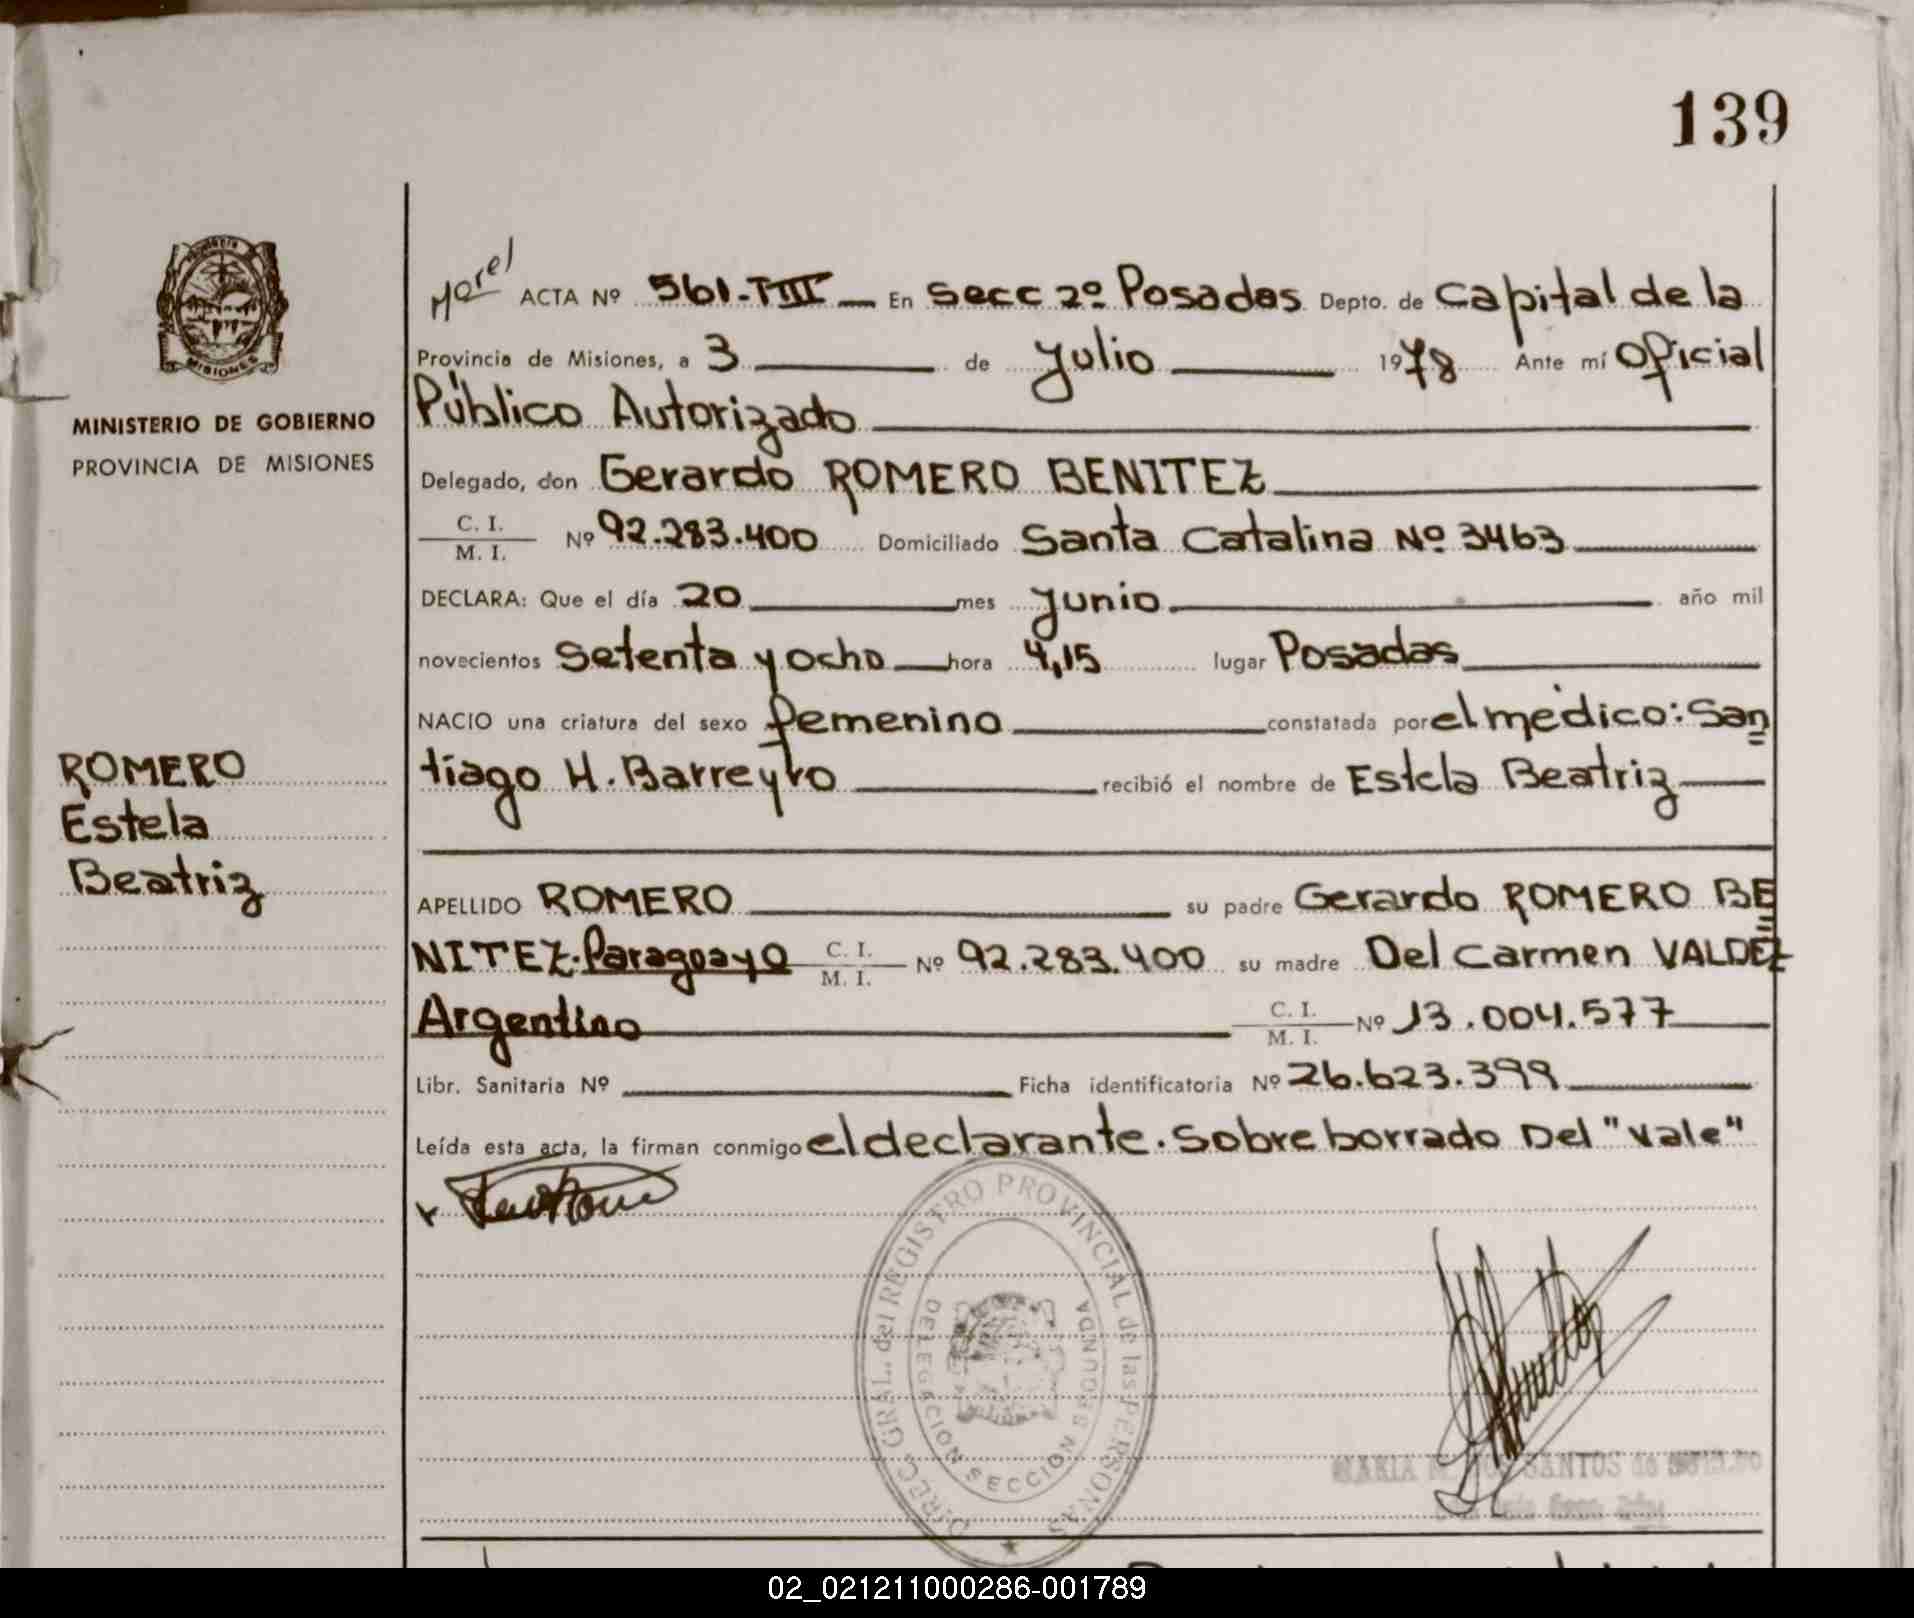 139
Morel ACTA Nº 561-TIII En Secc 2º Posadas Depto. de Capital de la
Provincia de Misiones, a 3 de Julio 1978 Ante mí Oficial
Público Autorizado
Delegado, don Gerardo ROMERO BENITEZ
C. I.
M. I.
Nº 92.283.400 Domiciliado Santa Catalina Nº 3463
DECLARA: Que el día 20 mes Junio año mil
novecientos Setenta y ocho hora 4,15 lugar Posadas
NACIO una criatura del sexo femenino constatada por el médico: San
tiago H. Barreyro recibió el nombre de Estela Beatriz
APELLIDO ROMERO su padre Gerardo ROMERO BE
NITEZ. Paraguayo C. I. M. I. Nº 92.283.400 su madre Del Carmen VALDEZ
Argentino C. I. M. I. Nº 13.004.577
Libr. Sanitaria Nº Ficha identificatoria Nº 26.623.399
Leída esta acta, la firman conmigo el declarante. Sobre borrado Del "Vale"
MINISTERIO DE GOBIERNO
PROVINCIA DE MISIONES
MISIONES
ROMERO
Estela
Beatriz
DIREC. GRAL. del REGISTRO PROVINCIAL de las PERSONAS
DELEGACION SECCION SEGUNDA
MARIA SANTOS de
02_021211000286-001789